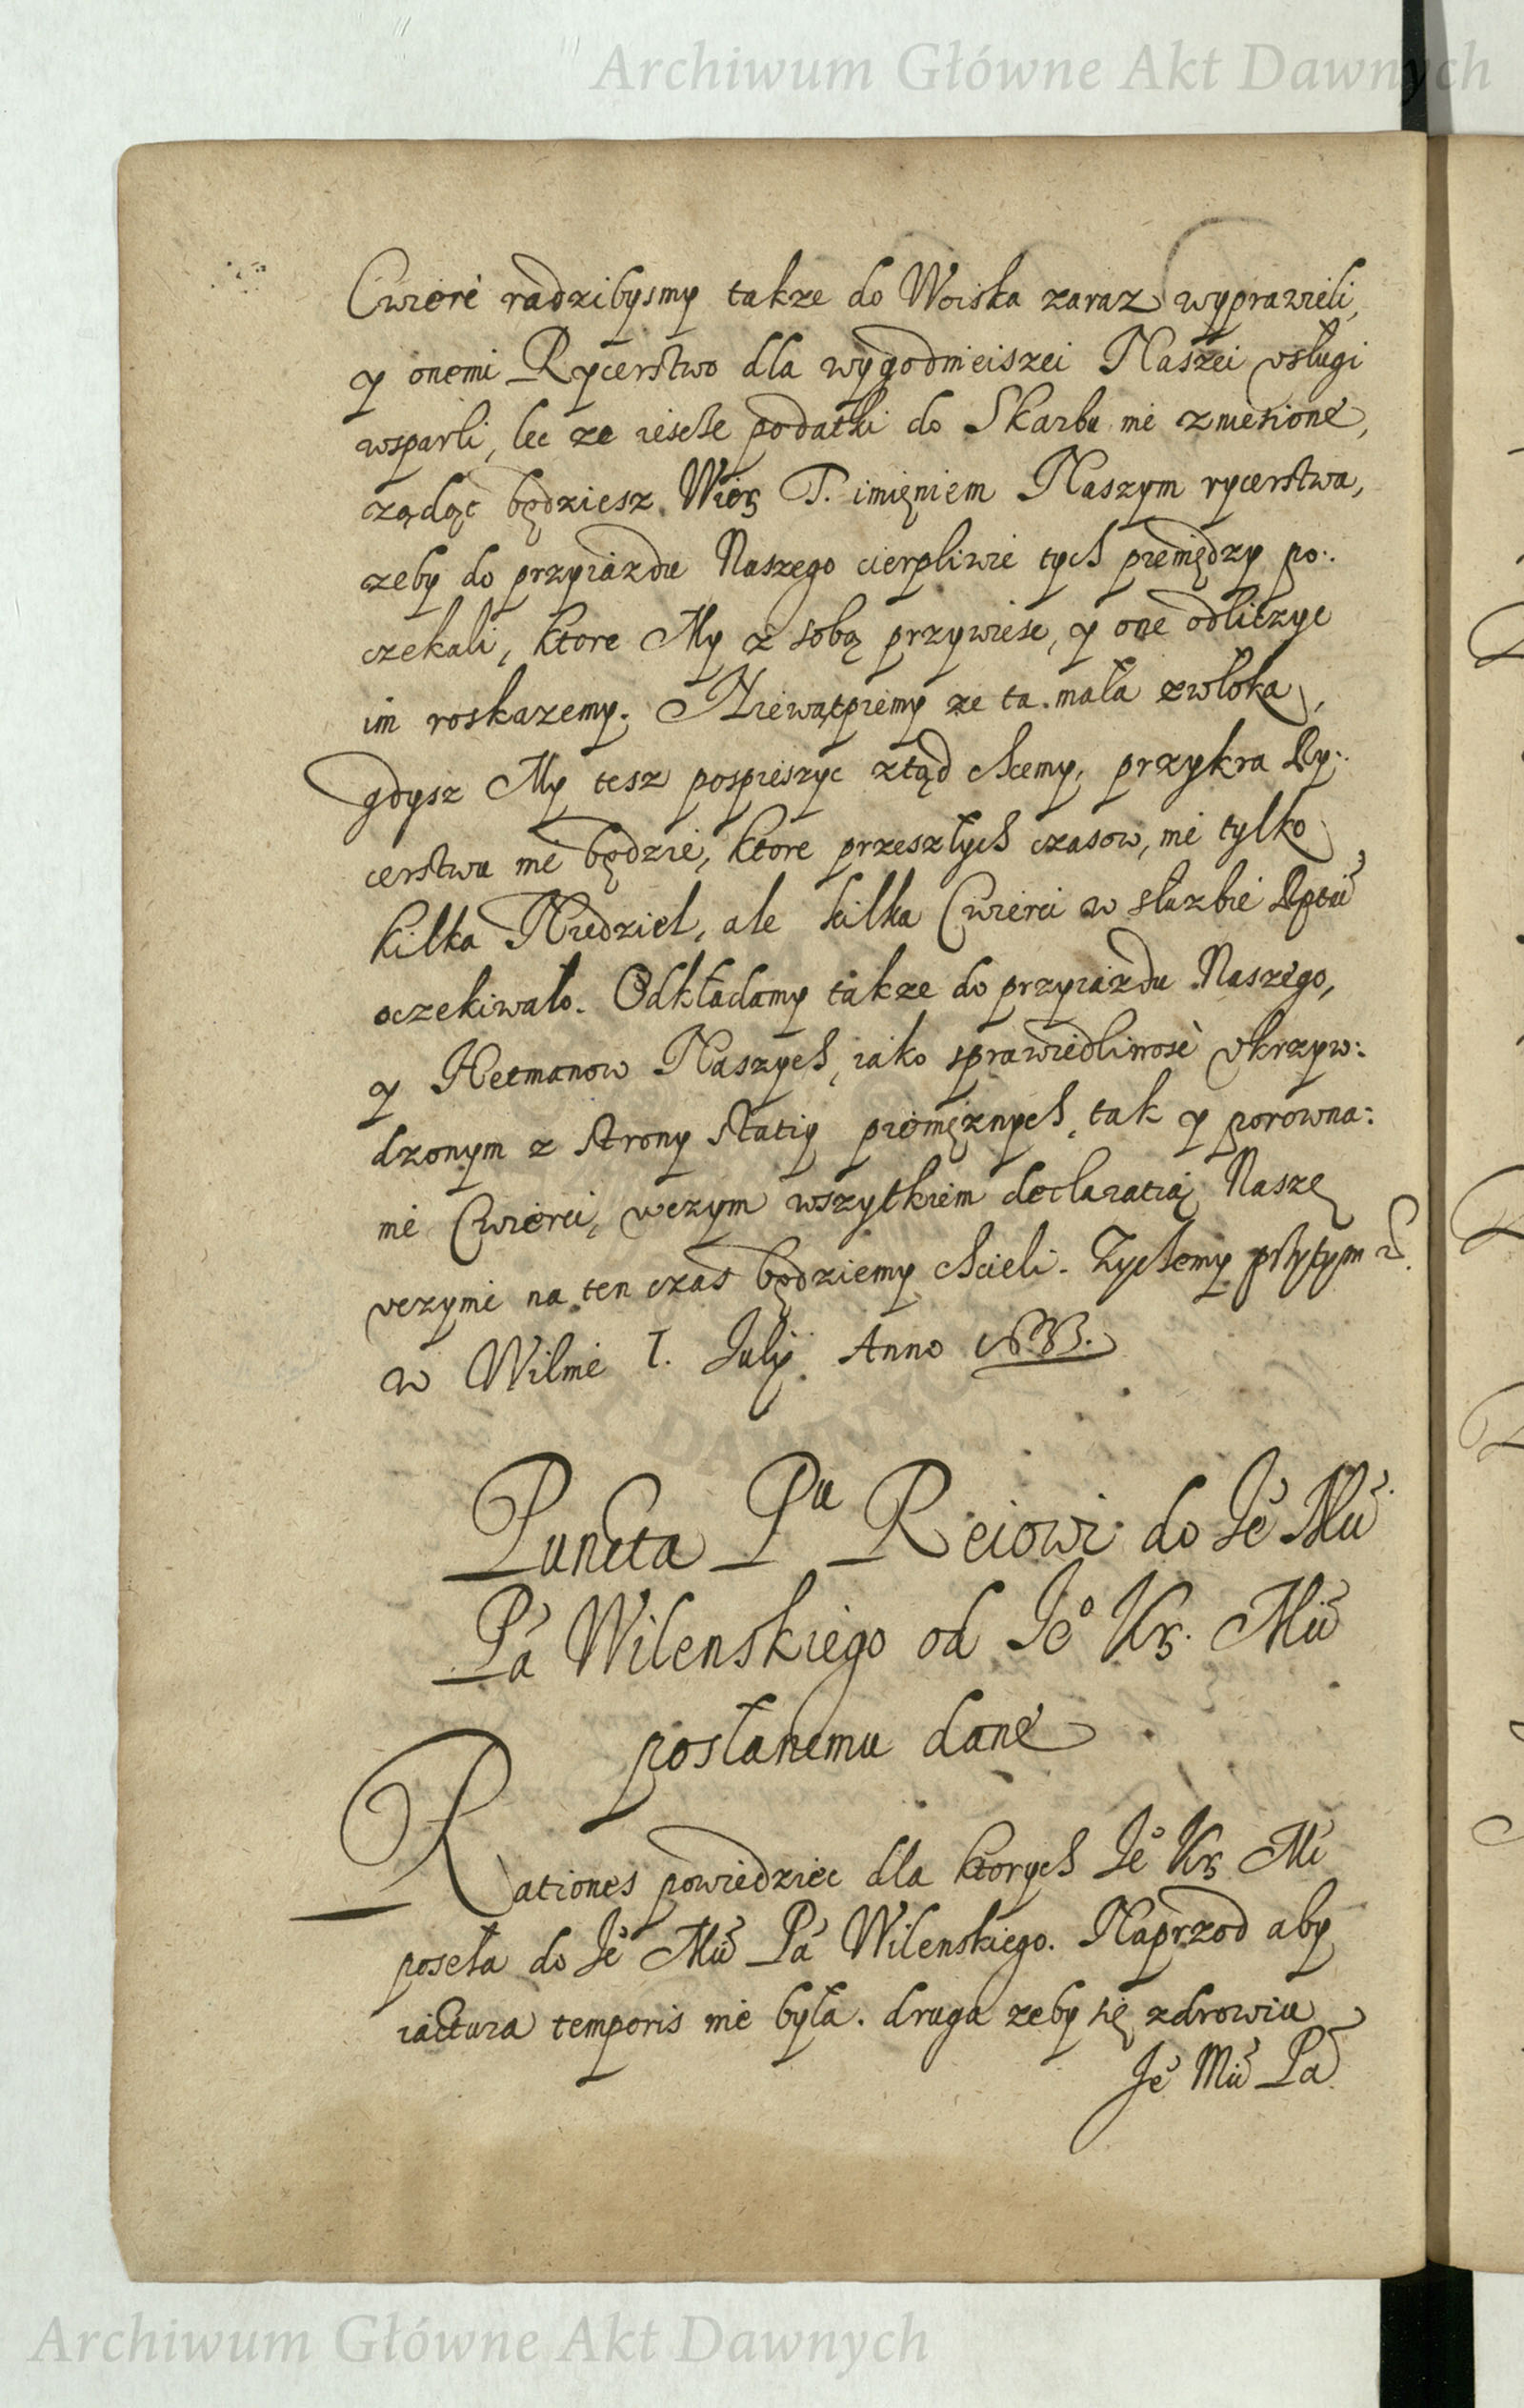 Archiwum Główne Akt Dawnych
Cwierć radzibysmy takze do Woiska zaraz wyprawieli,
y onemi Rycerstwo dla wygodnieiszei Naszei vsługi
wsparli, lec ze iescze podatki do Skarbu nie zniesione,
ządąć będziesz Wierz T. imięniem Naszym rycerstwa,
zeby do przyiazdu Naszego cierpliwie tych pieniędzy po:
czekali, ktore My z sobą przywiesc, y one odliczyc
im roskazemy. Niewątpiemy ze ta mała zwłoka,
gdysz My tesz pospieszyc ztąd chcemy, przykra Ry:
cerstwu nie będzie, ktore przeszłych czasow, nie tylko
kilka Niedziel, ale kilka Cwierci w słuzbie Rptei
oczekiwało. Odkładamy takze do przyiazdu Naszego,
y Hetmanow Naszych, iako sprawiedliwosć vkrzyw:
dzonym z strony statiy pieniężnych, tak y porowna:
nie Cwierci, wczym wszytkiem declaratią Naszę
vczynić na ten czas będziemy chcieli. Zyczemy przytym
w Wilnie 1. Julij Anno
Puncta Pu Reiowi do Je Mci
Pa Wilenskiego od Jeo Kr. Mci
posłanemu dane
Rationes powiedziec dla ktorych Jeo Kr Mć
poseła do Je Mci Pa Wilenskiego. Naprzod aby
iactura temporis nie była. druga zeby się zdrowiu
Je Mci Pa
Archiwum Główne Akt Dawnych